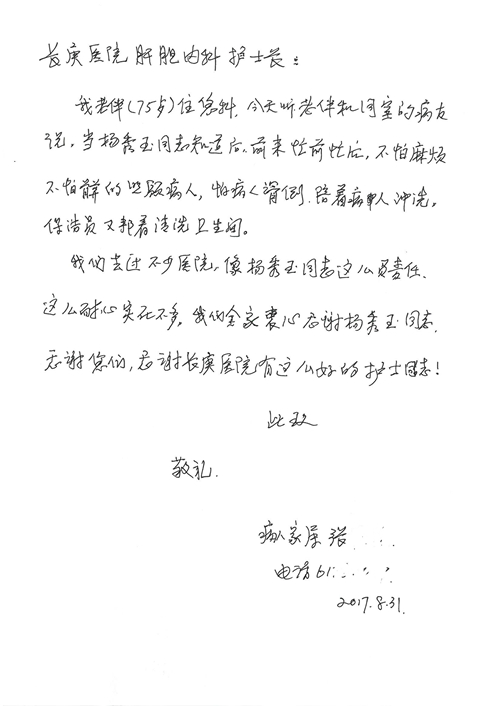 长庚医院肝胆内科护士长：
我老伴(75岁)住急科，今天听老伴和同室的病友
说，当杨秀玉同志知道后，前来忙前忙后，不怕麻烦
不怕脏的照顾病人，怕病人滑倒、陪着病人冲洗，
保洁员又帮着清洗卫生间。
我们去过不少医院，像杨秀玉同志这么负责任、
这么耐心实在不多，我们全家衷心感谢杨秀玉同志，
感谢您们，感谢长庚医院有这么好的护士同志！
此致
敬礼
病人家属 张
电话61
2017.8.31